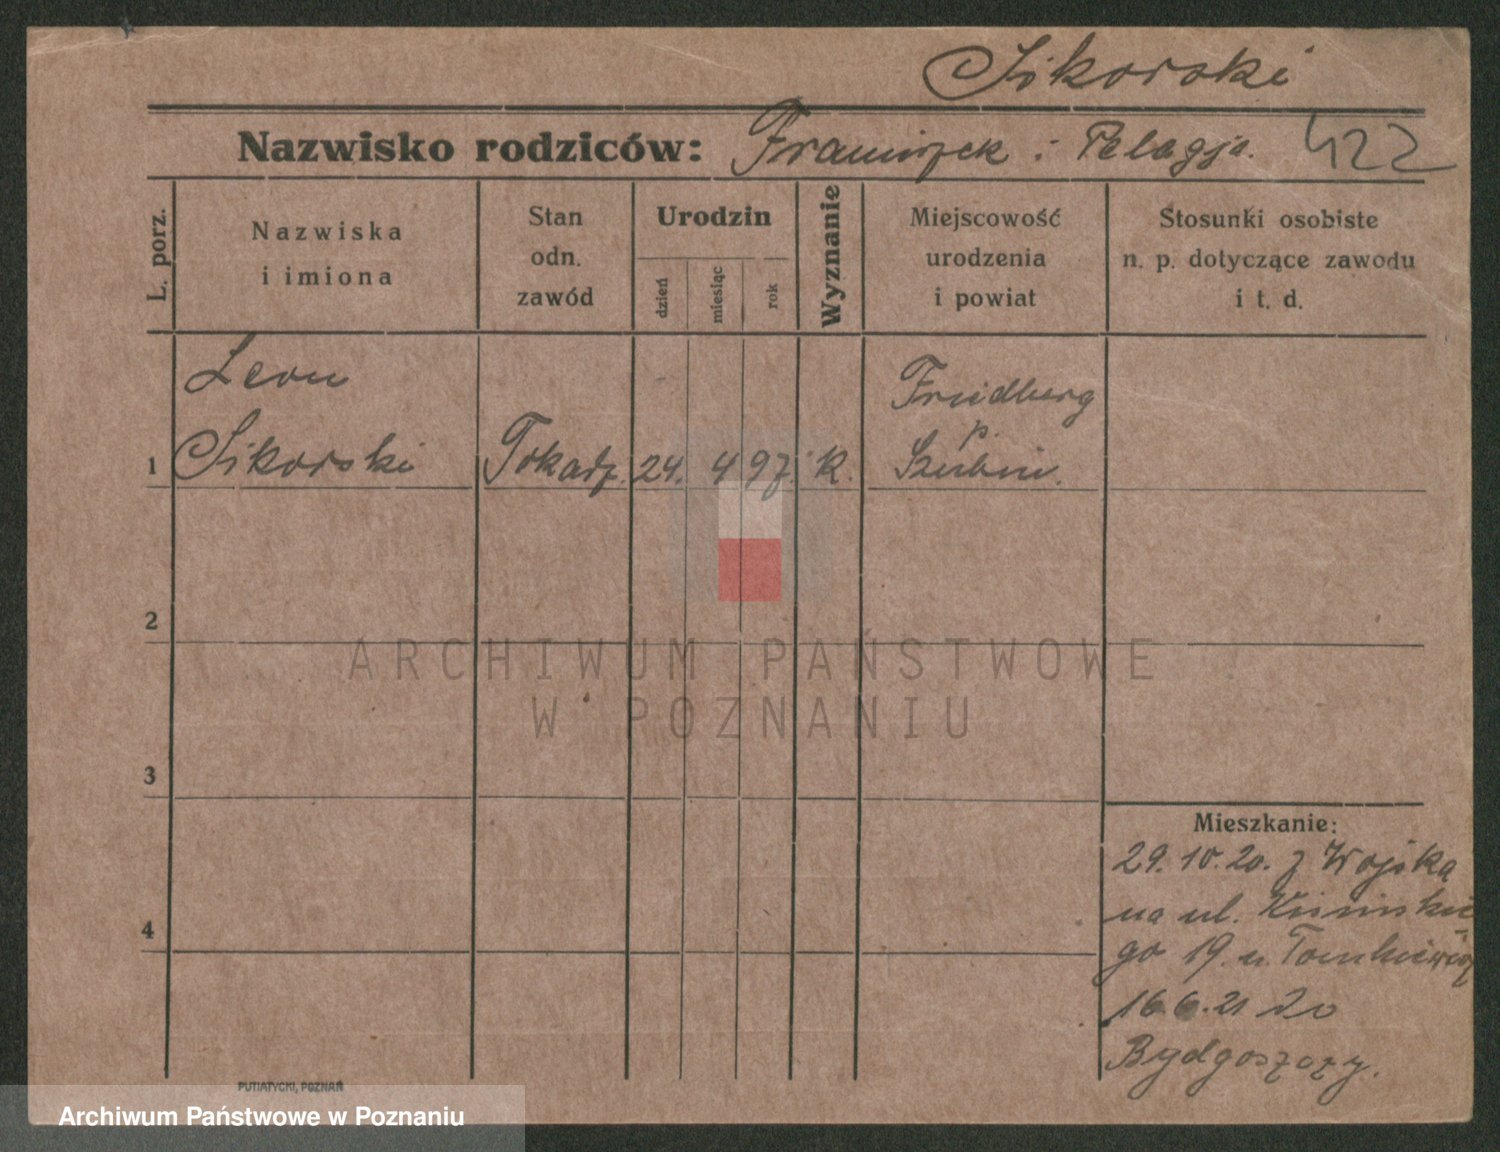 Sikorski
Nazwisko rodziców: Franciszek i Pelagja. 422
L. porz.
Nazwiska
i imiona
Stan
odn.
zawód
Urodzin
dzień
miesiąc
rok
Wyznanie
Miejscowość
urodzenia
i powiat
Stosunki osobiste
n. p. dotyczące zawodu
i t. d.
Leon
Friedberg
p.
1 Sikorski Tokarz. 24. 4 97. K. Szubin.
2
ARCHIWUM PAŃSTWOWE
W POZNANIU
3
Mieszkanie:
29.10.20. z Wojska
na ul.
4
go 19. u.
16.6.21 do
Bydgoszczy.
PUTIATYCKI, POZNAŃ
Archiwum Państwowe w Poznaniu